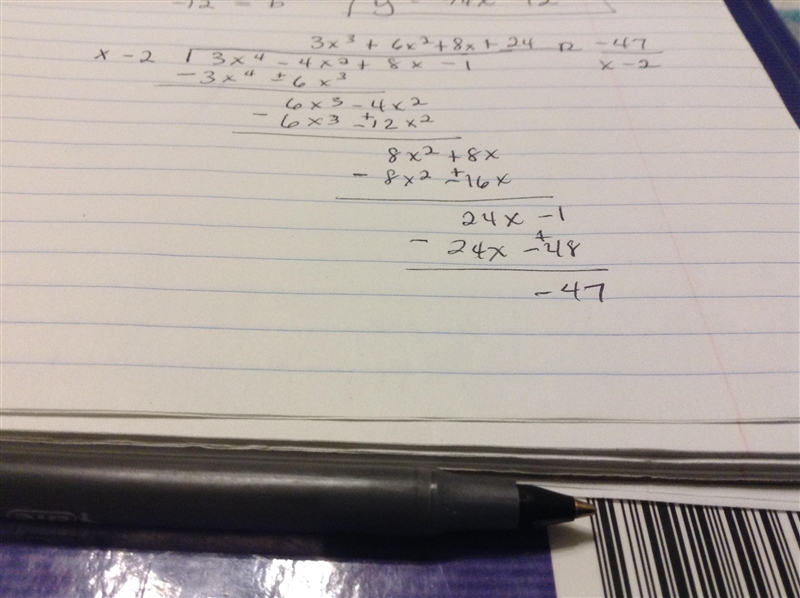 -12 = b
3x³ + 6x² + 8x + 24 R -47
x - 2 √ 3x⁴ - 4x² + 8x - 1 x - 2
- 3x⁴ ± 6x³
6x³ - 4x²
- 6x³ ± 12x²
8x² + 8x
- 8x² ± 16x
24x - 1
- 24x ± 48
- 47